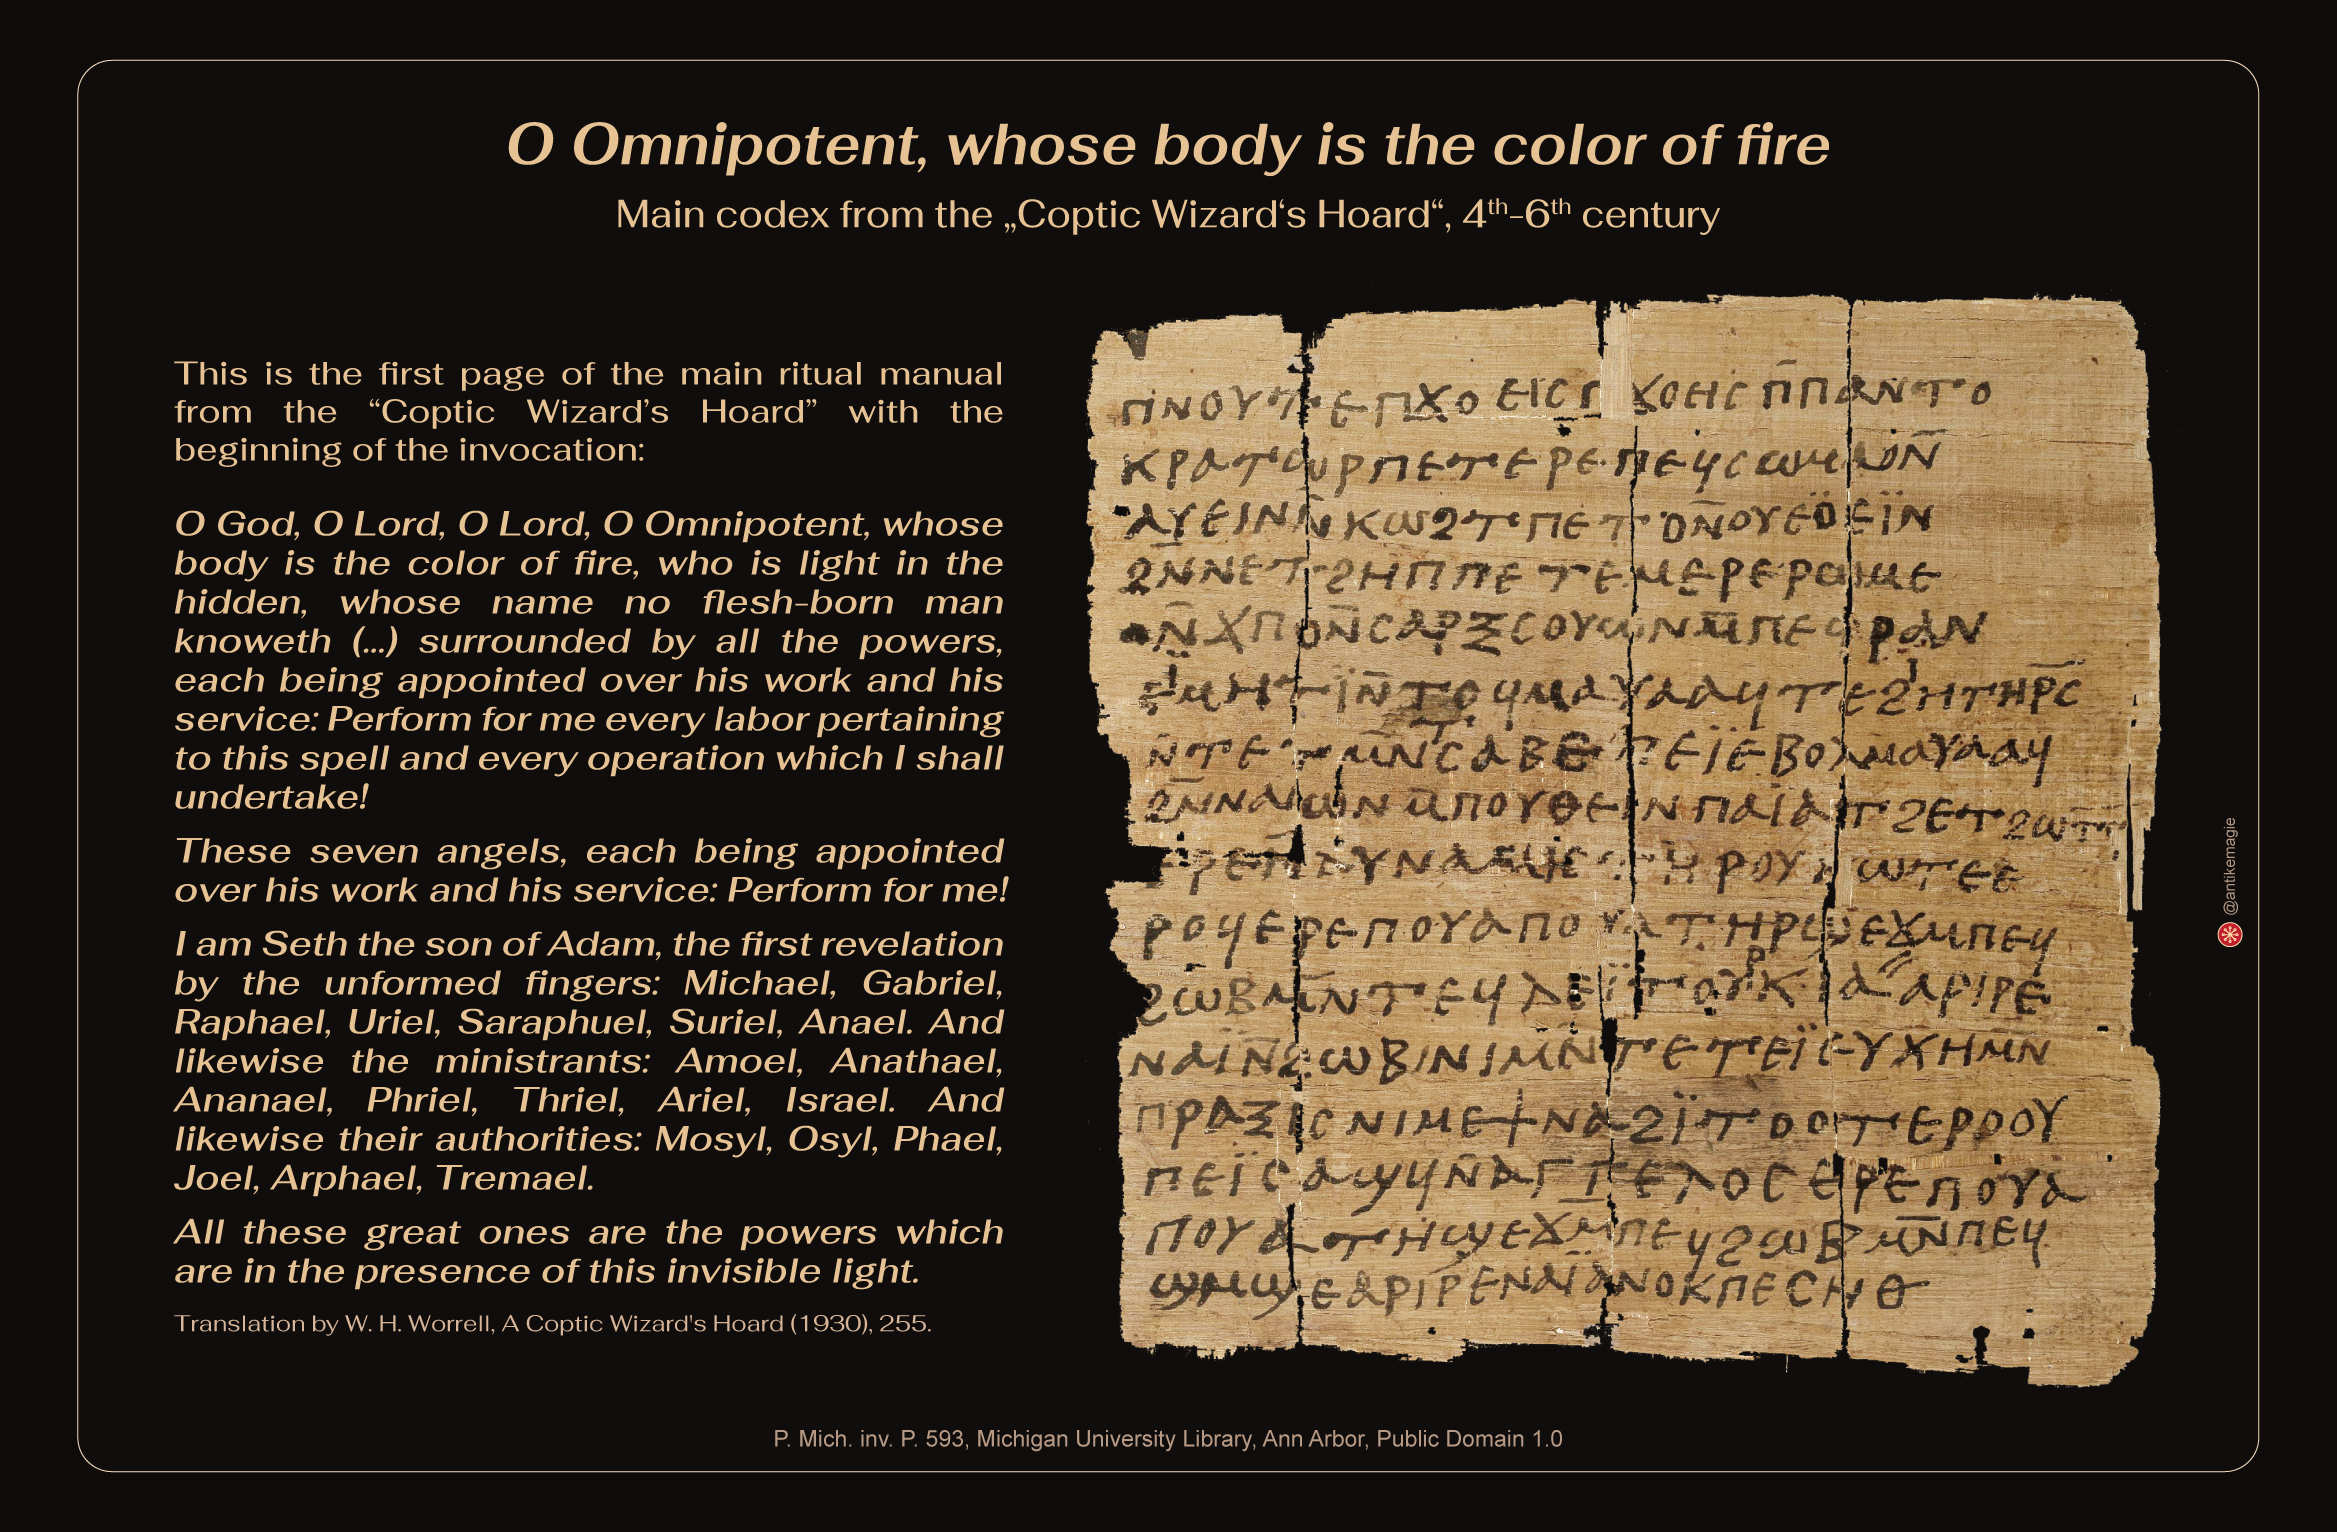 O Omnipotent, whose body is the color of fire
Main codex from the „Coptic Wizard‘s Hoard“, 4th-6th century
This is the first page of the main ritual manual
from the “Coptic Wizard’s Hoard” with the
beginning of the invocation:
O God, O Lord, O Lord, O Omnipotent, whose
body is the color of fire, who is light in the
hidden, whose name no flesh-born man
knoweth (...) surrounded by all the powers,
each being appointed over his work and his
service: Perform for me every labor pertaining
to this spell and every operation which I shall
undertake!
These seven angels, each being appointed
over his work and his service: Perform for me!
I am Seth the son of Adam, the first revelation
by the unformed fingers: Michael, Gabriel,
Raphael, Uriel, Saraphuel, Suriel, Anael. And
likewise the ministrants: Amoel, Anathael,
Ananael, Phriel, Thriel, Ariel, Israel. And
likewise their authorities: Mosyl, Osyl, Phael,
Joel, Arphael, Tremael.
All these great ones are the powers which
are in the presence of this invisible light.
Translation by W. H. Worrell, A Coptic Wizard's Hoard (1930), 255.
ⲡⲛⲟⲩⲧⲉⲡϫⲟⲉⲓⲥⲡϫⲟⲉⲓⲥⲡ̄ⲡⲁⲛⲧⲟ
ⲕⲣⲁⲧⲱⲣⲡⲉⲧⲉⲣⲉⲡⲉϥⲥⲱⲙⲁⲟⲛ̄
ⲁⲩⲉⲓⲛⲛ̄ⲕⲱϩⲧⲡⲉⲧⲟⲛ̄ⲟⲩⲉⲟⲉⲓ̈ⲛ
ϩⲛ̄ⲛⲉⲧϩⲏⲡⲡⲉⲧⲉⲙⲉⲣⲉⲣⲱⲙⲉ
ⲛ̄ϫⲡⲟⲛ̄ⲥⲁⲣⲝⲥⲟⲩⲱⲛⲙ̄ⲡⲉϥⲣⲁⲛ
ⲛⲁⲓ̈ⲛ̄ϩⲱⲃⲛⲓⲙⲛ̄ⲧⲉⲧⲉⲓ̈ⲉⲩⲭⲏⲙⲛ̄
ⲡⲣⲁⲝⲓⲥⲛⲓⲙⲉϯⲛⲁϩⲓ̈ⲧⲟⲟⲧⲉⲣⲟⲟⲩ
ⲡⲉⲓ̈ⲥⲁϣϥⲛ̄ⲁⲅⲅⲉⲗⲟⲥⲉⲣⲉⲡⲟⲩⲁ
ⲡⲟⲩⲁⲧⲏϣⲉϫⲙ̄ⲡⲉϥϩⲱⲃⲙⲛ̄ⲡⲉϥ
ϣⲙϣⲉⲁⲣⲓⲣⲉⲛⲁⲓ̈ⲁⲛⲟⲕⲡⲉⲥⲏⲑ
@antikemagie
P. Mich. inv. P. 593, Michigan University Library, Ann Arbor, Public Domain 1.0